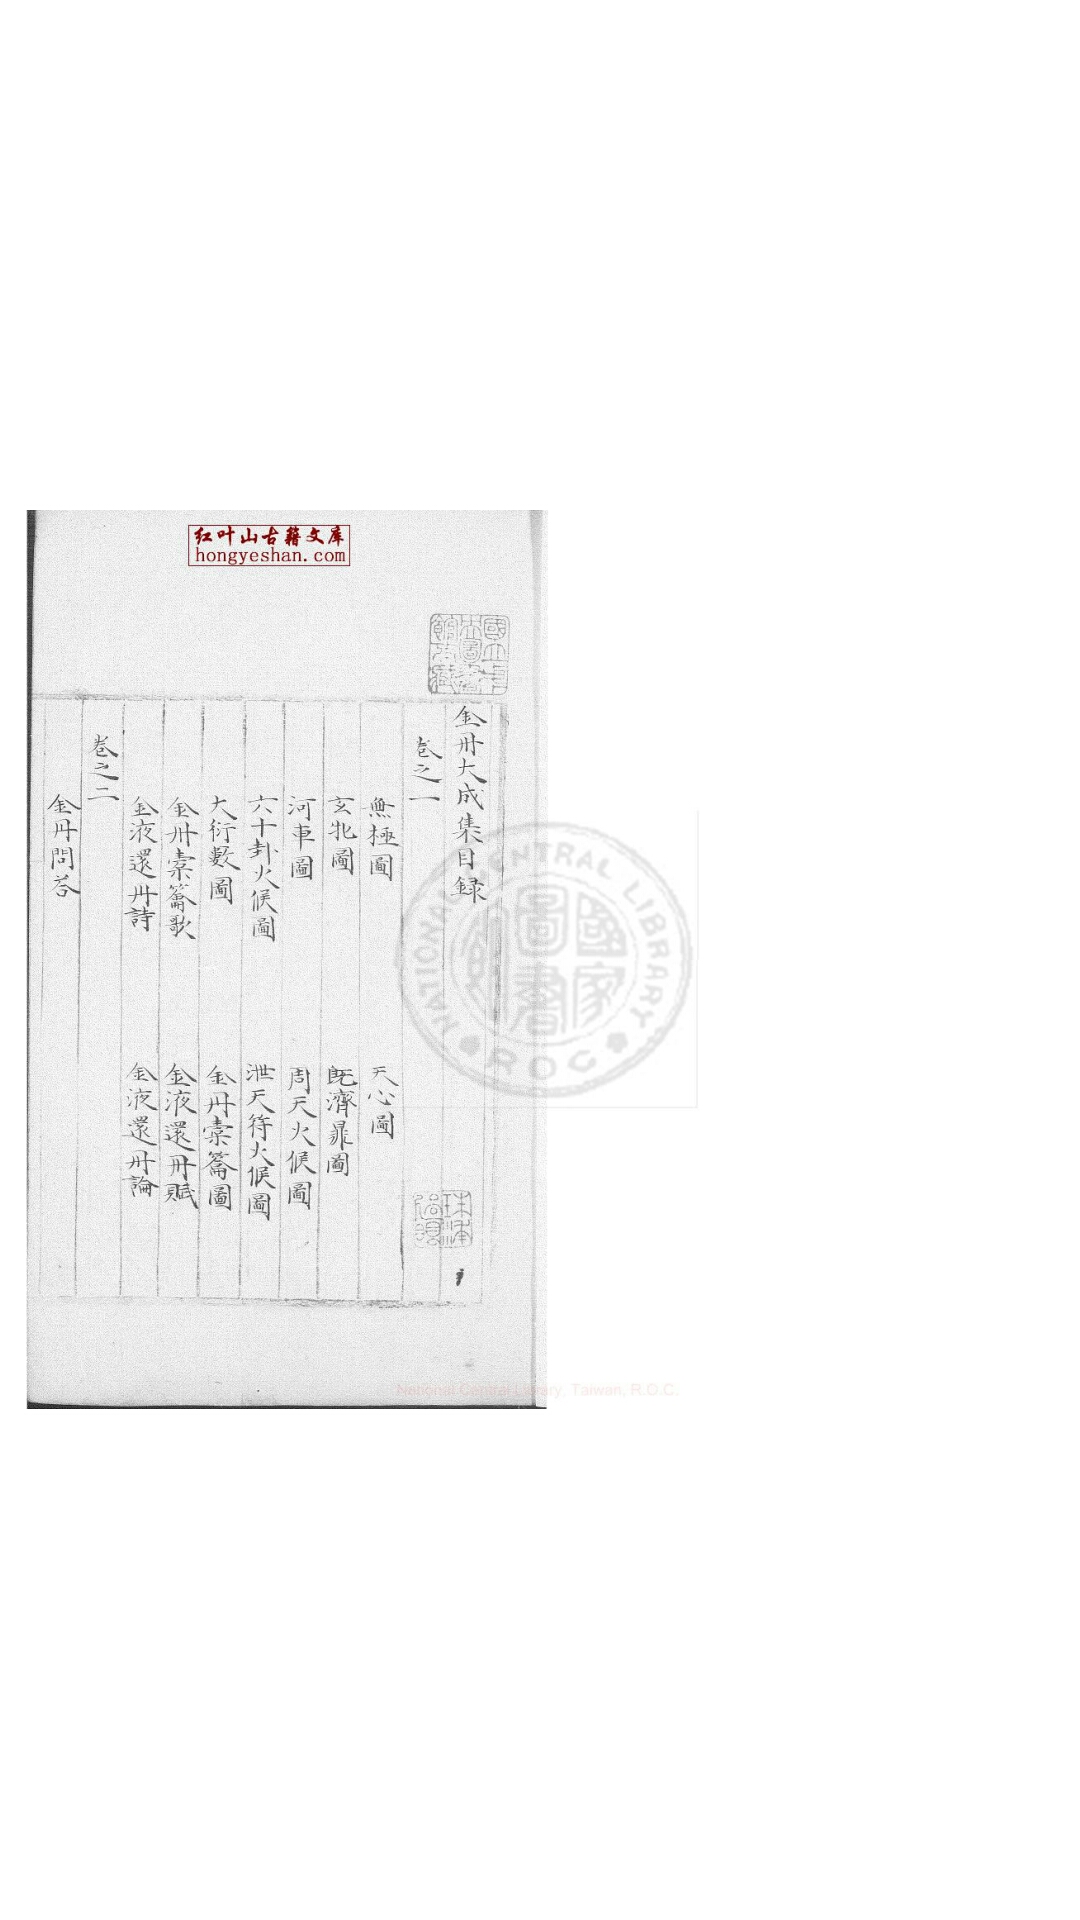 红叶山古籍文库
hongyeshan.com
國立中
央圖書
館收藏
金丹大成集目錄
卷之一
無極圖　天心圖
玄牝圖　既濟鼎圖
河車圖　周天火候圖
六十卦火候圖　泄天符火候圖
大衍數圖　金丹橐籥圖
金丹橐籥歌　金液還丹賦
金液還丹詩　金液還丹論
卷之二
金丹問答
NATIONAL CENTRAL LIBRARY
國家圖書館
ROC
National Central Library, Taiwan, R.O.C.